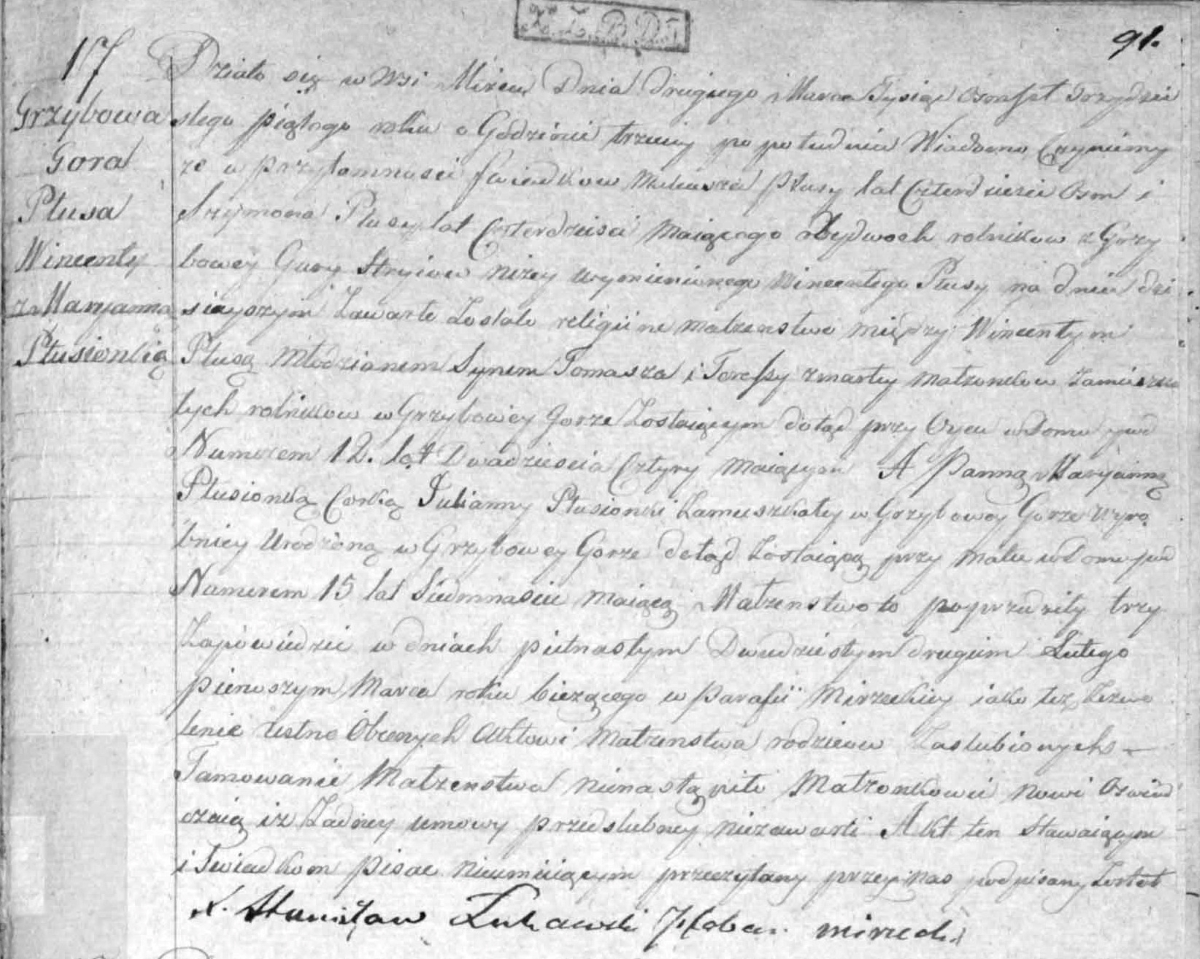 Z. Ł. B. D. T.
91.
17
Grzybowa
Gora
Płusa
Wincenty
z Maryanną
Płusionką
Działo się w Wsi Mircu Dnia drugiego Marca Tysiąc Osmset Trzydzie
stego piątego roku o Godzinie trzeciey po południu Wiadomo Czyniemy
ze w przytomnosci Swiadkow Mateusza Płusy lat Czterdziesci Osm i
Szymona Płusy lat Czterdziesci Maiącego obydwoch rolnikow z Grzy
bowey Gury Stryiow nizey wymienionego Wincentego Płusy na dniu dzi
sieyszym Zawarte Zostało religiine małzenstwo między Wincentym
Płusą Młodzianem Synem Tomasza i Teressy zmarłey Małzonkow Zamieszka
łych rolnikow w Grzybowey Gorze Zostaiącym dotąd przy Oycu w Domu pod
Numerem 12. lat Dwadziescia Cztyry maiącym A Panną Maryanną
Płusionką Corką Julianny Płusionki Zamieszkałey w Grzybowey Gorze Wyro
bnicy Urodzoną w Grzybowey Gorze dotąd Zostaiącą przy Matce w Domu pod
Numerem 15 lat Siedmnascie maiącą Małzenstwo to poprzedziły trzy
Zapowiedzie w dniach pietnastym Dwudziestym drugim Lutego
pierwszym Marca roku biezącego w Parafii Mirzeckiey iako tez Zezwo
lenie Ustne Obecnych Aktowi Małzenstwa rodzicow Zaslubionych
Tamowanie Małzenstwa nienastąpiło Małzonkowie nowi Oswiad
czaią iz Zadney umowy przedslubney niezawarli Akt ten Stawaiącym
i Swiadkom pisac nieumieiącym przeczytany przez nas podpisany Został
X. Stanisław Żukawski Pleban mirzecki